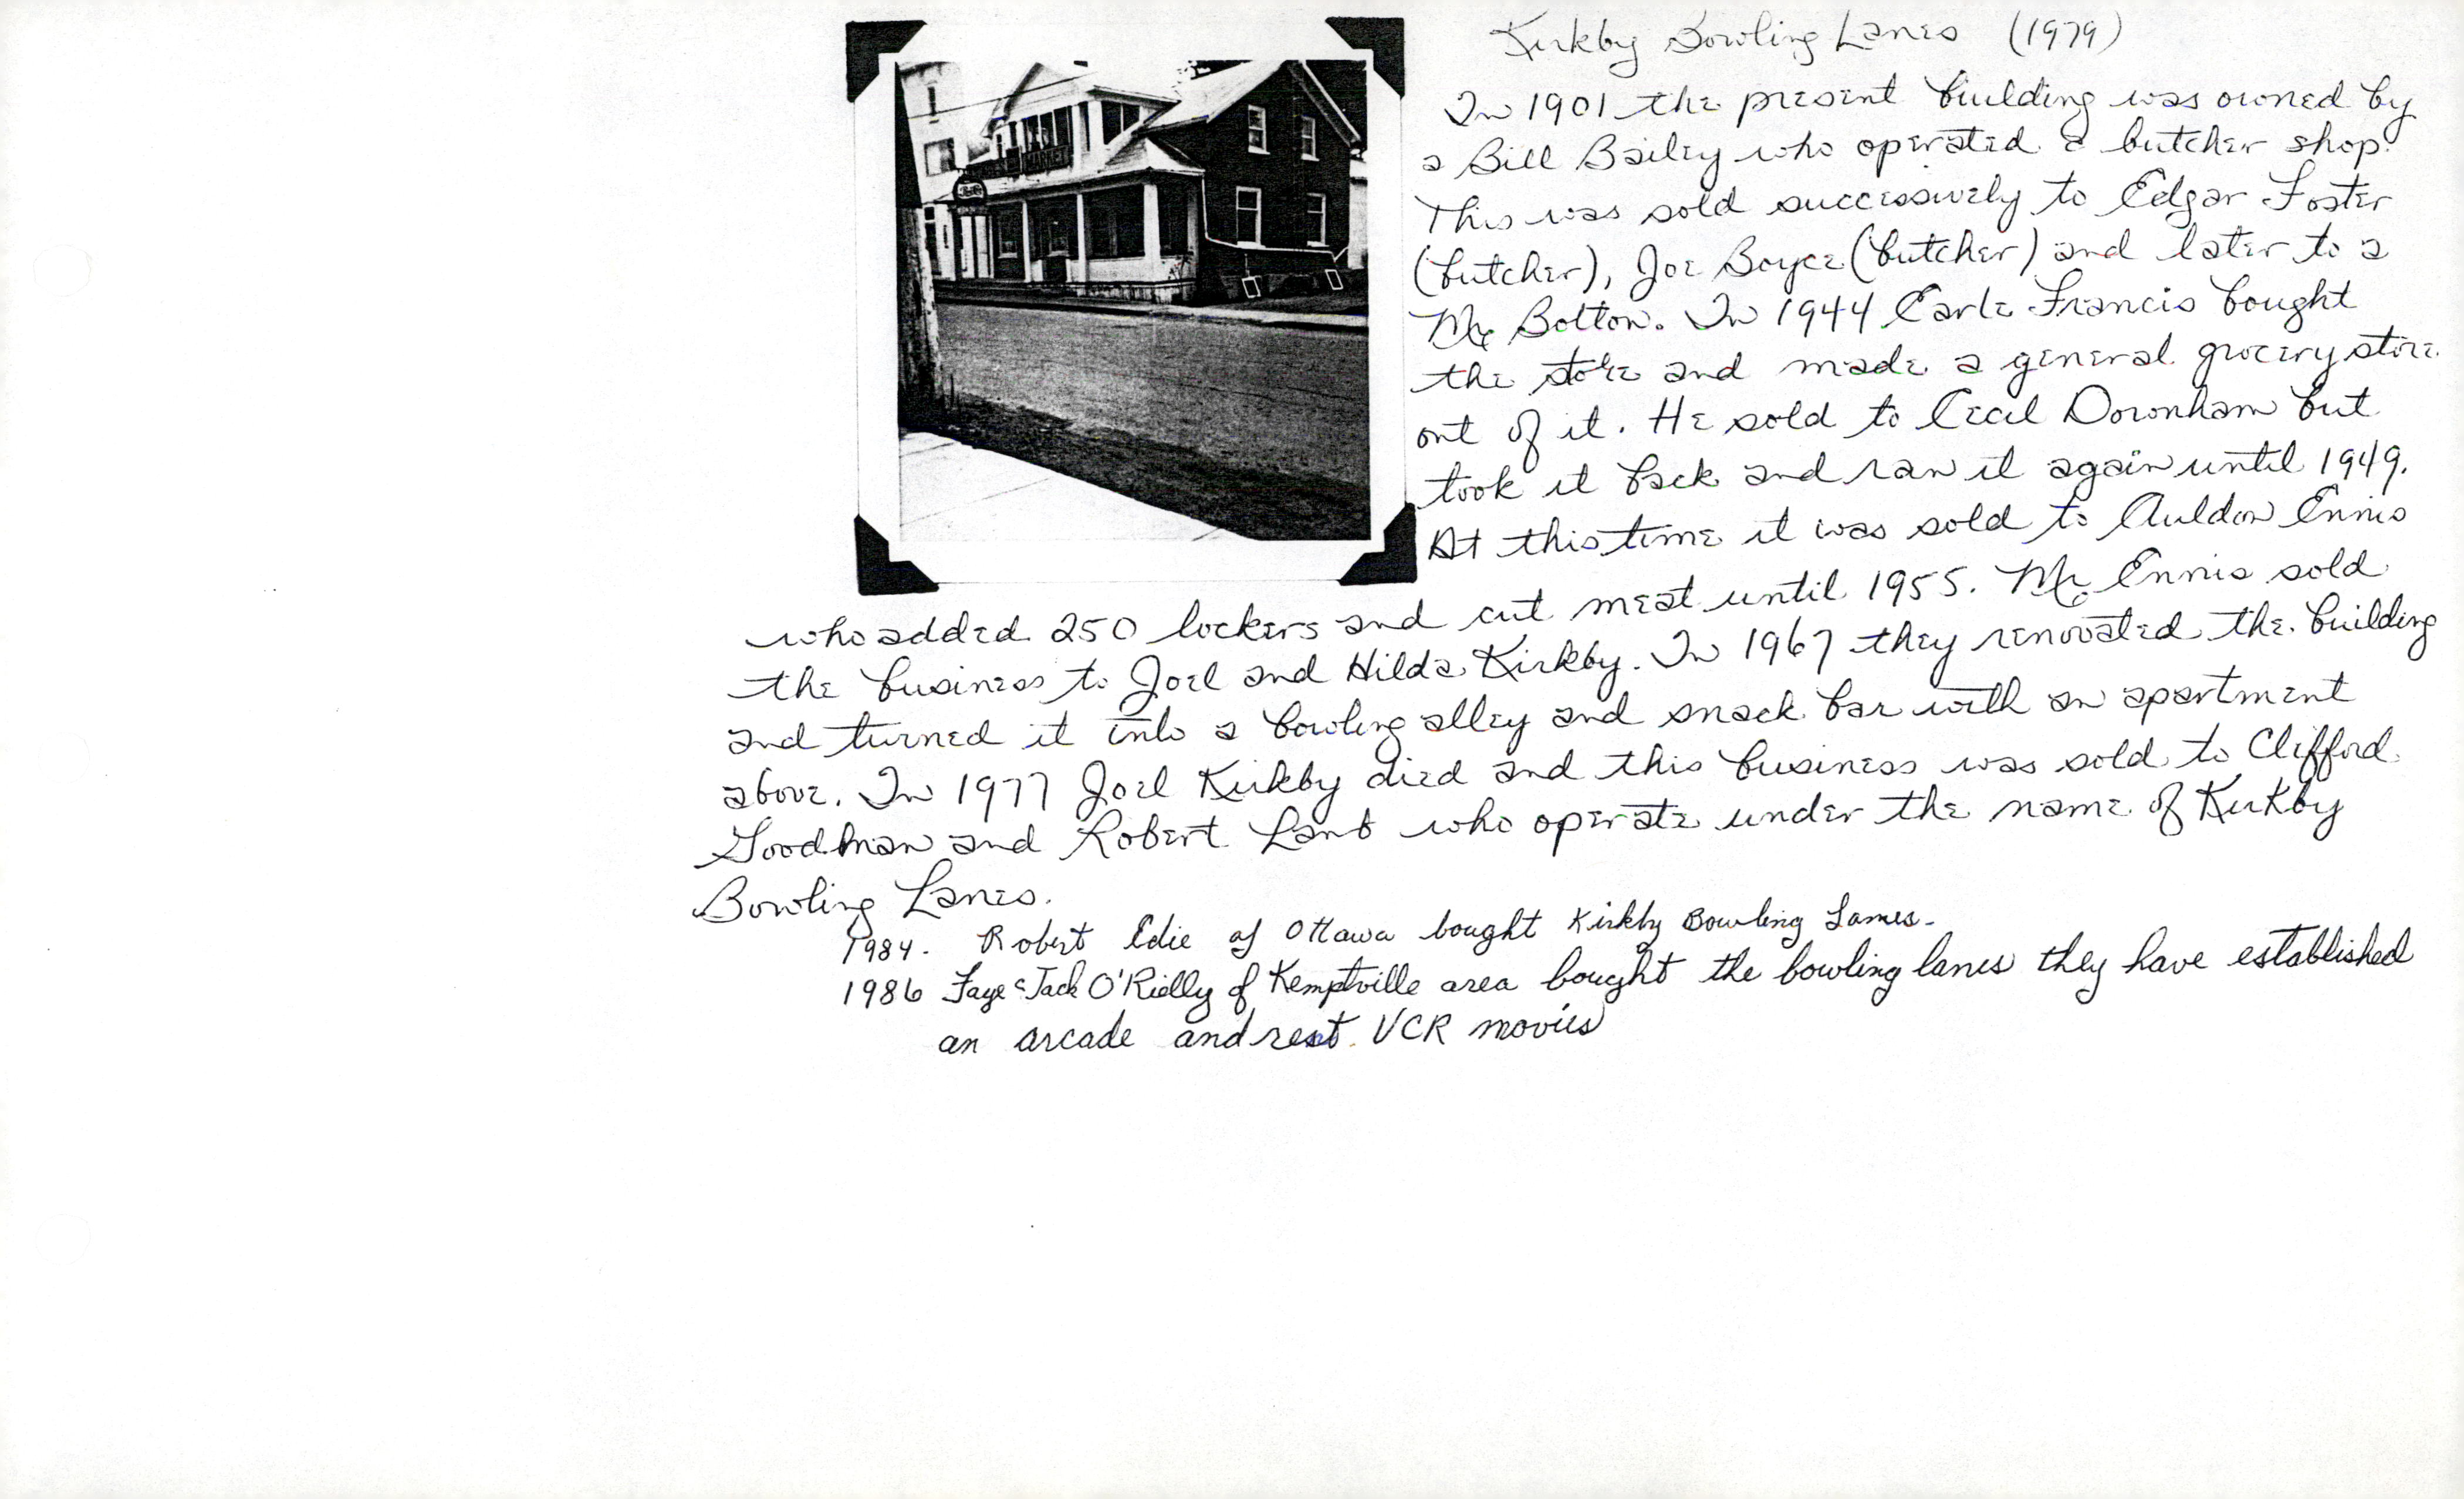 Kirkby Bowling Lanes (1979)
In 1901 the present building was owned by
a Bill Bailey who operated a butcher shop.
This was sold successively to Edgar Foster
(butcher), Joe Boyce (butcher) and later to a
Mr. Bolton. In 1944 Earle Francis bought
the store and made a general grocery store
out of it. He sold to Cecil Downham but
took it back and ran it again until 1949.
At this time it was sold to Auldon Ennis
who added 250 lockers and cut meat until 1955. Mr. Ennis sold
the business to Joel and Hilda Kirkby. In 1967 they renovated the building
and turned it into a bowling alley and snack bar with an apartment
above. In 1977 Joel Kirkby died and this business was sold to Clifford
Goodman and Robert Lamb who operate under the name of Kirkby
Bowling Lanes.
1984. Robert Edie of Ottawa bought Kirkby Bowling Lanes.
1986 Faye & Jack O'Rielly of Kemptville area bought the bowling lanes they have established
an arcade and rent VCR movies
MARKET